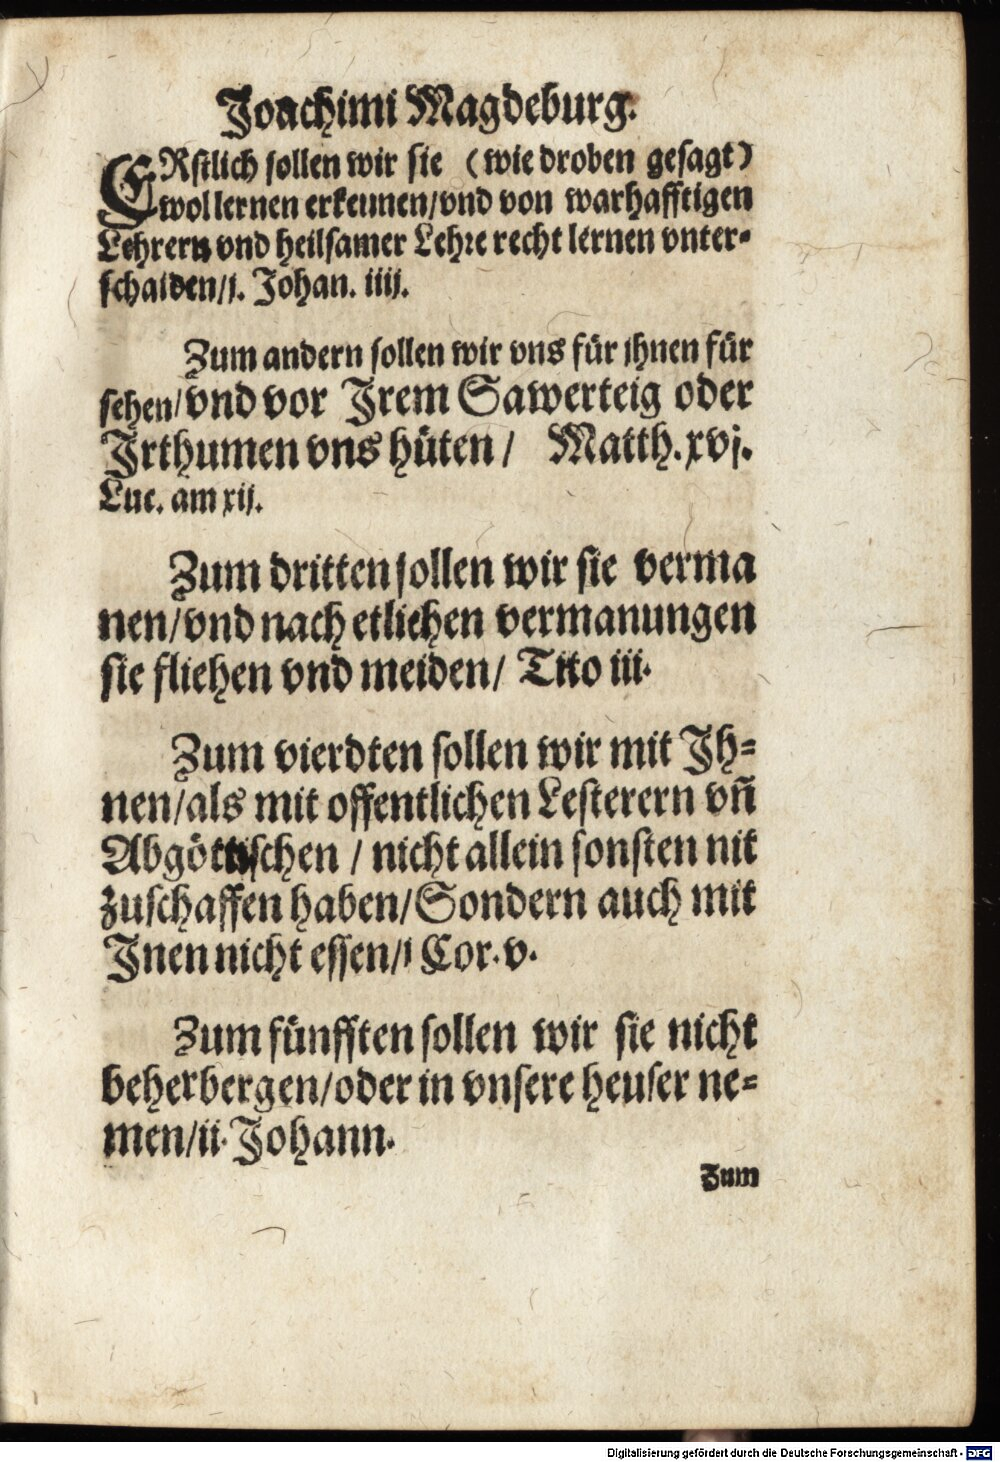 Joachimi Magdeburg.
ERstlich sollen wir sie (wie droben gesagt)
wol lernen erkennen/vnd von warhafftigen
Lehrern vnd heilsamer Lehre recht lernen vnter-
schaiden/j. Johan. iiij.
Zum andern sollen wir vns für ihnen für
sehen/vnd vor Jrem Sawerteig oder
Jrthumen vns hüten/ Matth. xvj.
Luc. am xij.
Zum dritten sollen wir sie verma
nen/vnd nach etlichen vermanungen
sie fliehen vnd meiden/ Tito iii.
Zum vierdten sollen wir mit Jh-
nen/als mit offentlichen Lesterern vñ
Abgöttischen / nicht allein sonsten nit
zuschaffen haben/Sondern auch mit
Jnen nicht essen/j Cor. v.
Zum fünfften sollen wir sie nicht
beherbergen/oder in vnsere heuser ne-
men/ii. Johann.
Zum
Digitalisierung gefördert durch die Deutsche Forschungsgemeinschaft - DFG